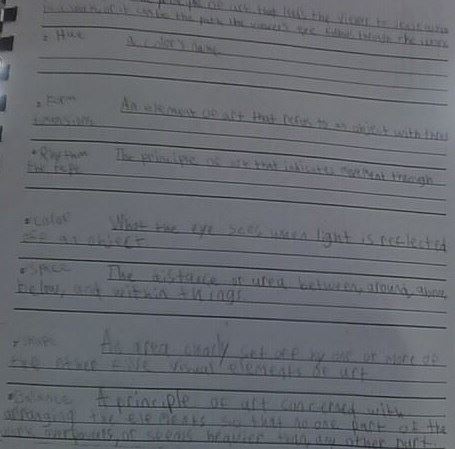 of art that leads the viewer to
the path the viewer's eye follows through the work
• Hue a color's name
• Form An element of art that refers to an object with three
dimensions
• Rhythm The principle of art that indicates movement through
the
• Color What the eye sees when light is reflected
off an object
• Space The distance or area between, around, above,
below, and within things
• Shape An area clearly set off by one or more of
the other five visual elements of art
• Balance A principle of art concerned with
arranging the elements so that no one part of the
work or seems heavier than any other part